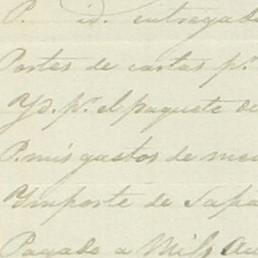 P. id. entregado
Portes de cartas pr.
Yd. pr. el paquete de
P. mis gastos de
Ymporte de Zapa
Pagado a Mils